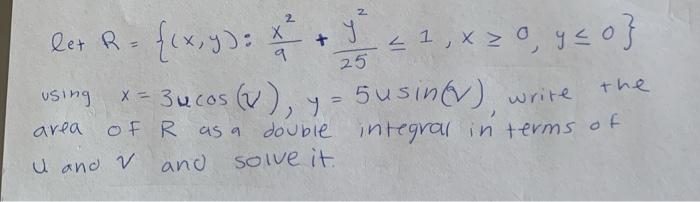 let R = {(x,y): x²/9 + y²/25 ≤ 1, x ≥ 0, y ≤ 0}
using x = 3u cos(v), y = 5u sin(v), write the
area of R as a double integral in terms of
u and v and solve it.